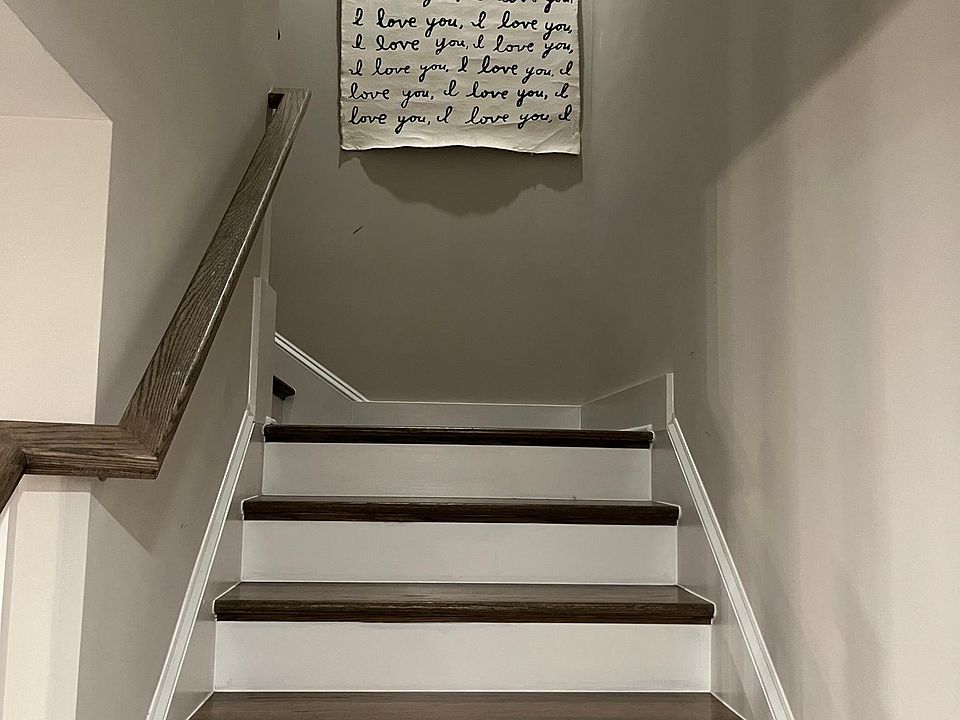 I love you, I love you,
I love you, I love you,
I love you, I love you, I
love you, I love you, I
love you, I love you, I